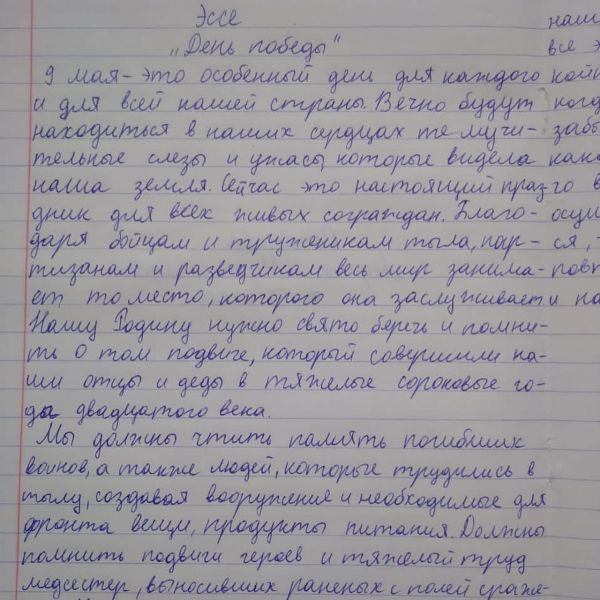 Эссе
„День победы"
9 мая - это особенный день для каждого
и для всей нашей страны. Вечно будут
находиться в наших сердцах те мучи-
тельные слезы и ужасы, которые видела
наша земля. Сейчас это настоящий праз-
дник для всех живых сограждан. Благо-
даря бойцам и труженикам тыла, пар-
тизанам и разведчикам весь мир занима-
ет то место, которого она заслуживает
Нашу Родину нужно свято беречь и помни-
ть о том подвиге, который совершили на-
ши отцы и деды в тяжелые сороковые го-
ды двадцатого века.
Мы должны чтить память погибших
воинов, а также людей, которые трудились в
тылу, создавая вооружение и необходимые для
фронта вещи, продукты питания. Должны
помнить подвиги героев и тяжелый труд
медсестер, выносивших раненых с полей сраже-
наш
все э
когд
забы
го в
осущ
ся,
и на